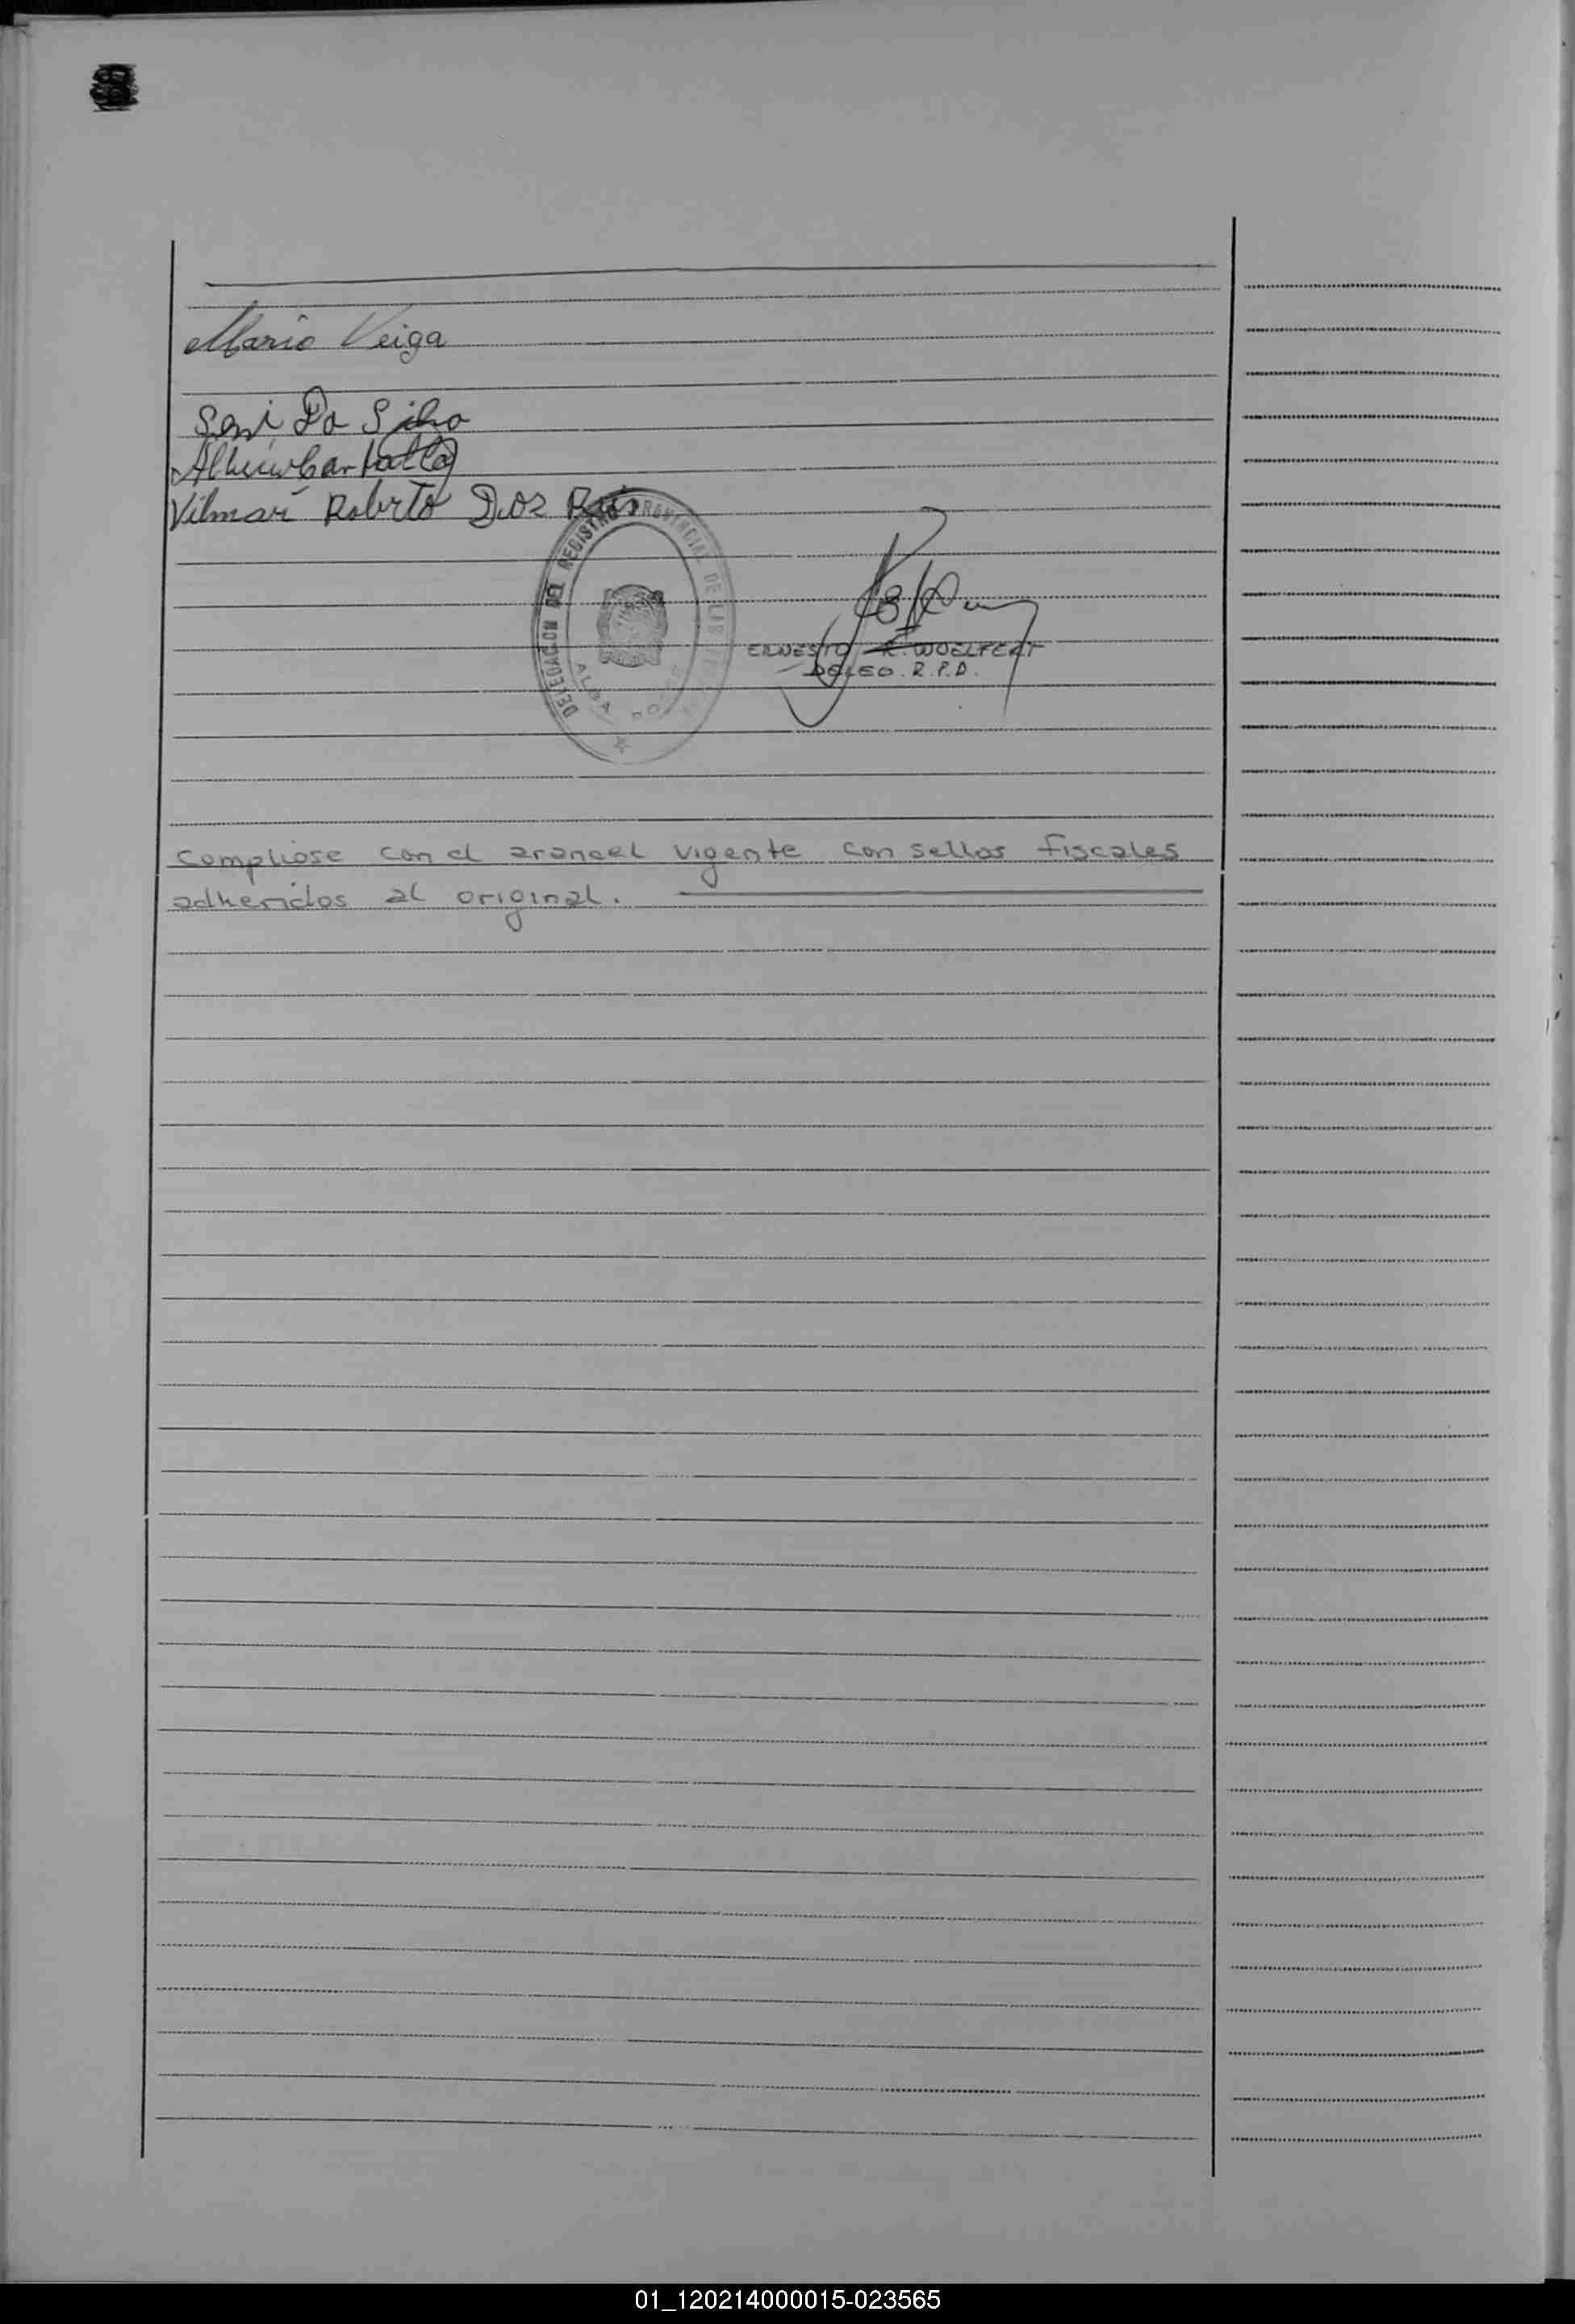 Mario Veiga
Seni Da Silva
Vilmar Roberto Dos Reis
DELEGACION DEL REGISTRO PROVINCIAL DE LAS
ALBA
ERNESTO R. WOELFERT
DELEG. R.P.D.
Compliose con el arancel vigente con sellos fiscales
adheridos al original.
01_120214000015-023565